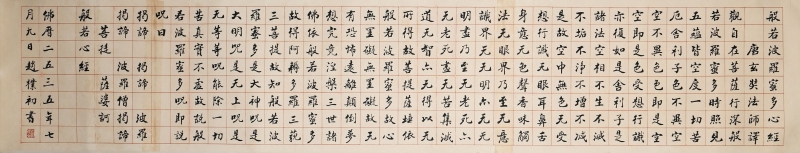 般若波羅蜜多心經
唐玄奘法師譯
觀自在菩薩行深般
若波羅蜜多時照見
五蘊皆空度一切苦
厄舍利子色不異空
空不異色色即是空
空即是色受想行識
亦復如是舍利子是
諸法空相不生不滅
不垢不淨不增不減
是故空中无色无受
想行識无眼耳鼻舌
身意无色聲香味觸
法无眼界乃至无意
識界无无明亦无无
明盡乃至无老死亦
无老死盡无苦集滅
道无智亦无得以无
所得故菩提薩埵依
般若波羅蜜多故心
无罣礙无罣礙故无
有恐怖遠離顛倒夢
想究竟涅槃三世諸
佛依般若波羅蜜多
故得阿耨多羅三藐
三菩提故知般若波
羅蜜多是大神呪是
大明呪是无上呪是
无等等呪能除一切
苦真實不虛故說般
若波羅蜜多呪即說
呪曰
揭諦 揭諦 波羅
揭諦 波羅僧揭諦
菩提 薩婆訶
般若心經
佛曆二五三五年七
月九日趙樸初書